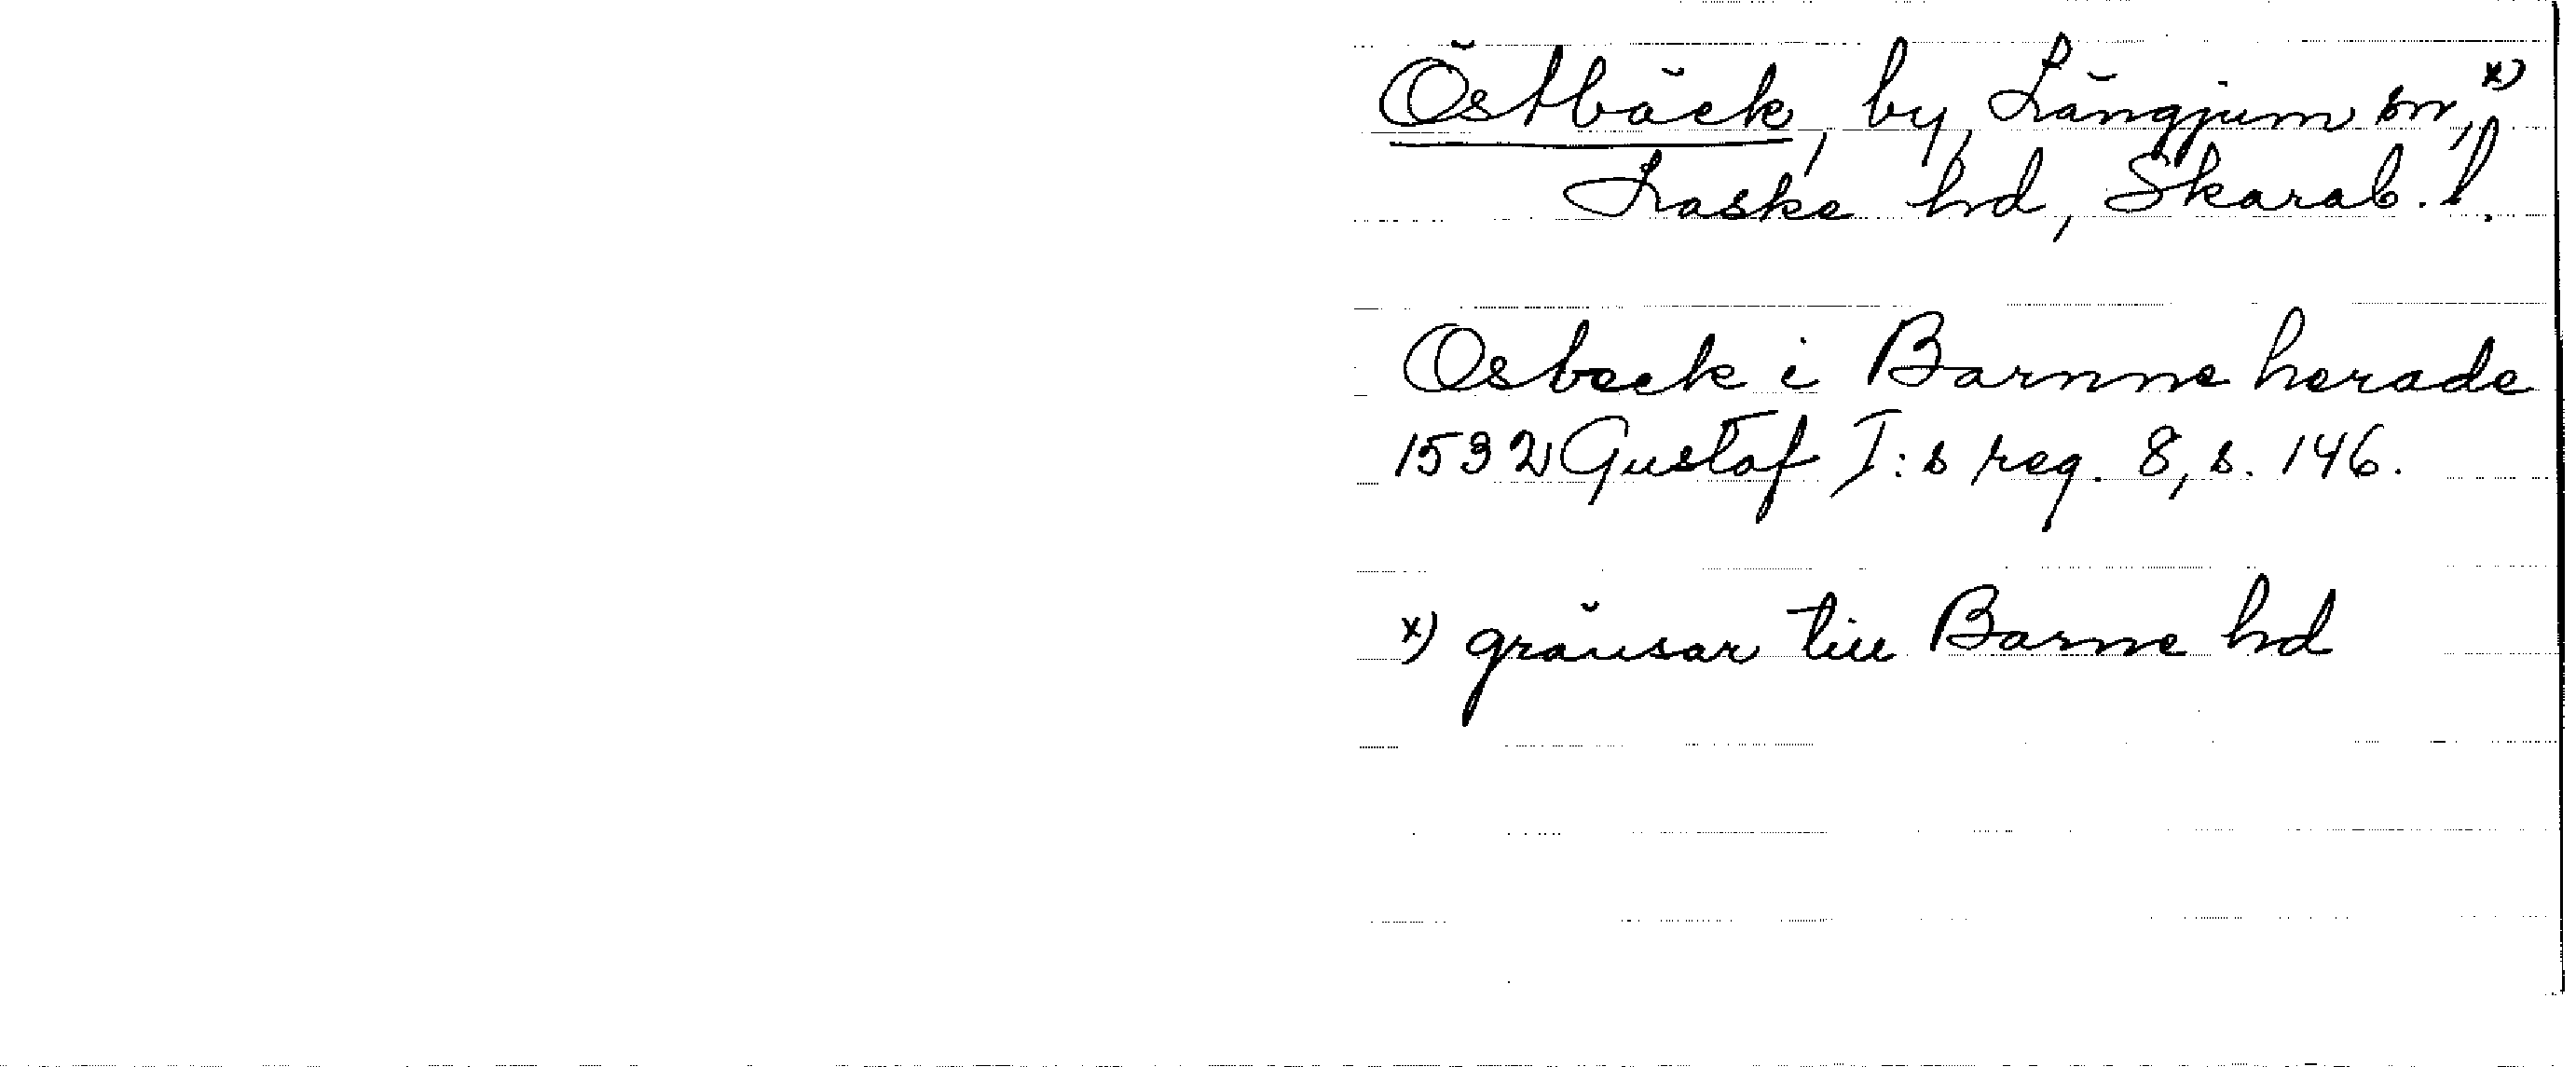 Östbäck, by, Långjum sn, x)
Laske hd, Skarab. l.
Osbeck i Barnne herade
1532 Gustaf I:s reg. 8, s. 146.
x) gränsar till Barne hd